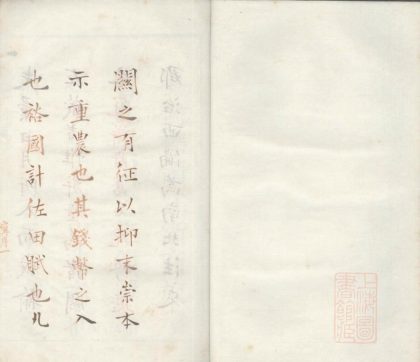 關之有征以抑末崇本
示重農也其錢幣之入
也裕國計佐田賦也凡
上海圖
書館藏